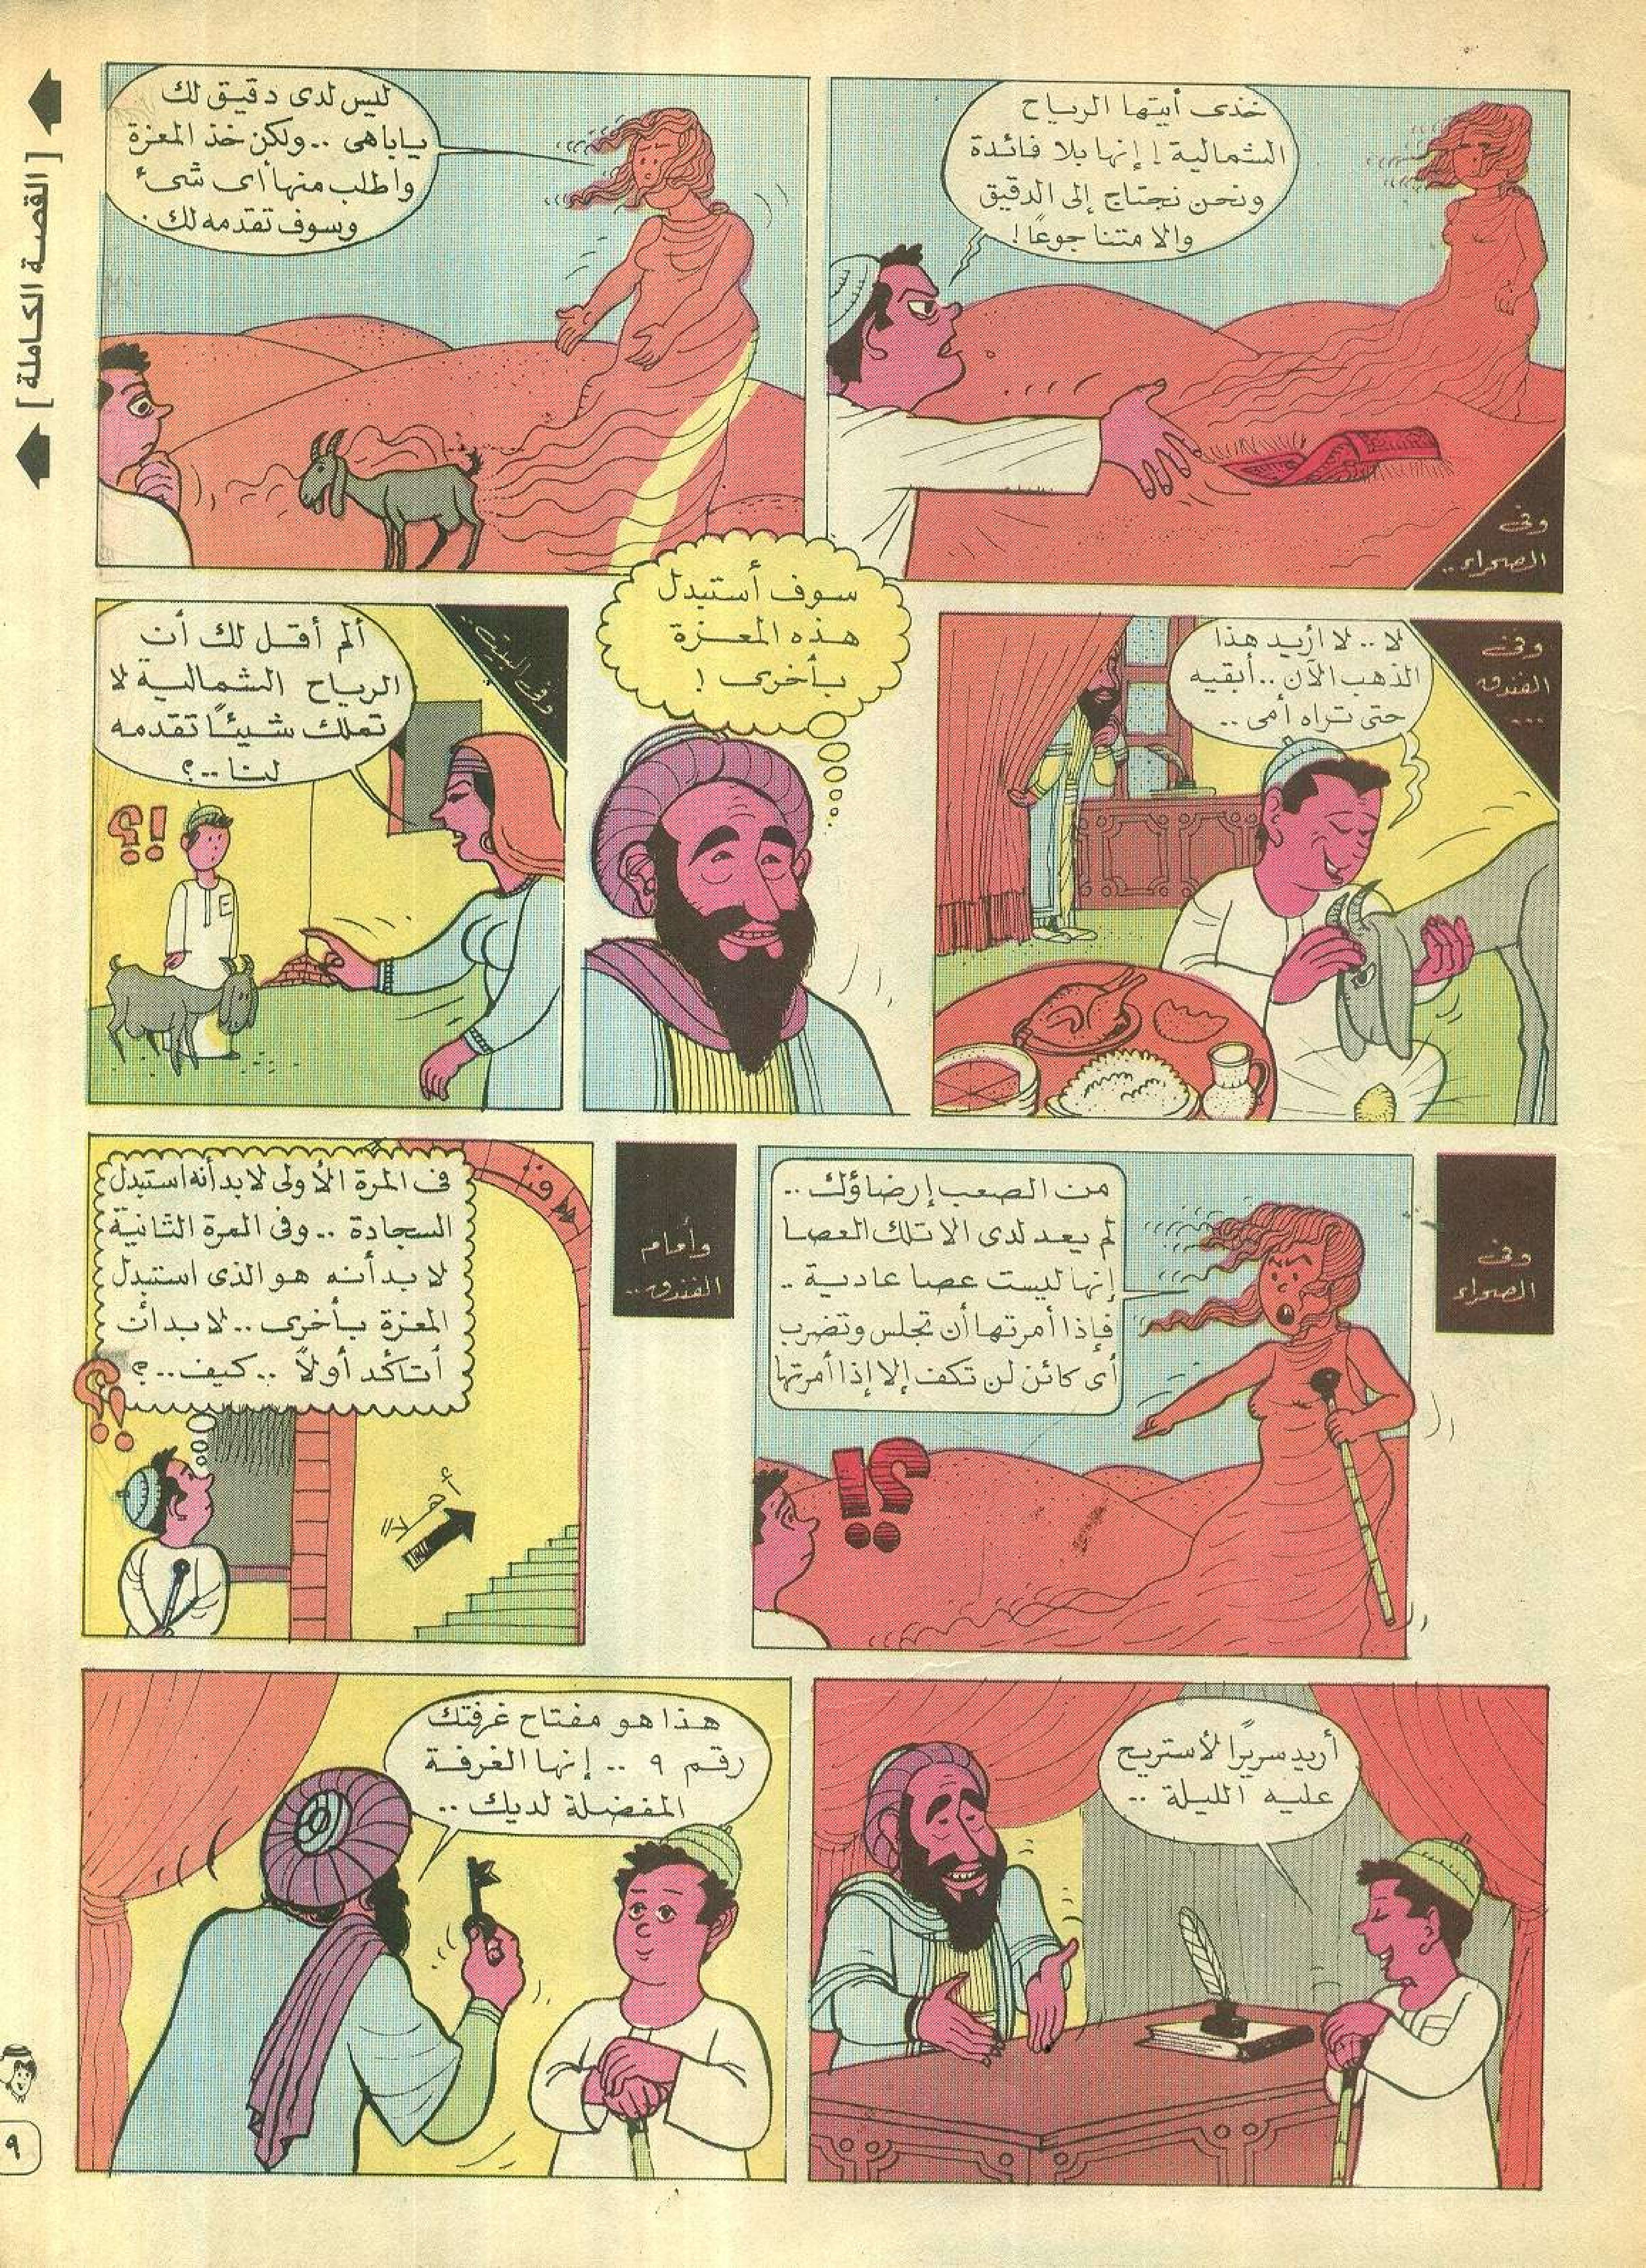 [ القصة الكاملة ]
خذى أيتها الرياح
الشمالية ! إنها بلا فائدة
ونحن نحتاج إلى الدقيق
والا متنا جوعًا !
وفى
الصحراء ..
ليس لدى دقيق لك
ياباهى .. ولكن خذ المعزة
واطلب منها أى شئ
وسوف تقدمه لك .
وفى
الفندق
...
لا .. لا أريد هذا
الذهب الآن .. أبقيه
حتى تراه أمى ..
سوف أستبدل
هذه المعزة
بأخرى !
وفى البيت ..
ألم أقل لك أن
الرياح الشمالية لا
تملك شيئًا تقدمه
لنا .. ؟
؟!
وفى
الصحراء
من الصعب إرضاؤك ..
لم يعد لدى الا تلك العصا
إنها ليست عصا عادية ..
فإذا أمرتها أن تجلس وتضرب
أى كائن لن تكف إلا إذا أمرتها
؟!
وأمام
الفندق ..
فى المرة الأولى لابد أنه استبدل
السجادة .. وفى المرة الثانية
لابد أنه هو الذى استبدل
المعزة بأخرى .. لابد أن
أتأكد أولاً .. كيف .. ؟
؟!
أهلا
أريد سريرًا لأستريح
عليه الليلة ..
هذا هو مفتاح غرفتك
رقم ٩ .. إنها الغرفة
المفضلة لديك ..
٩